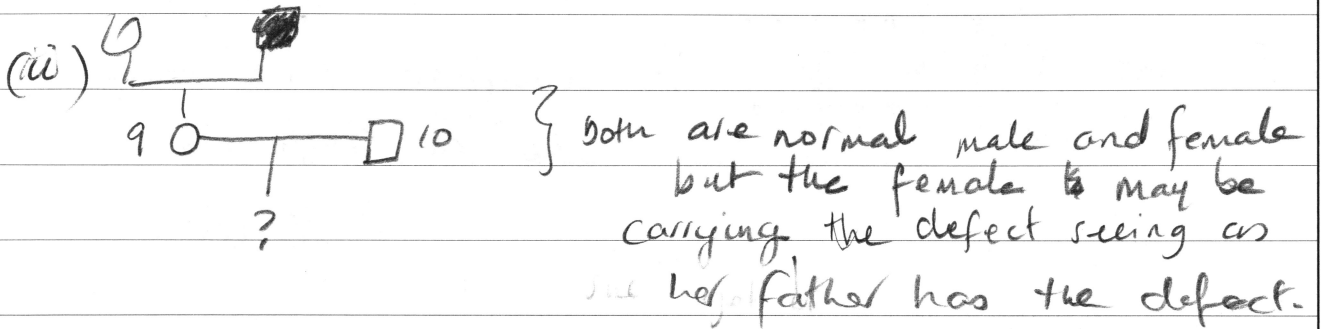 (iii)
9 10 } Both are normal male and female
but the female may be
? carrying the defect seeing as
her father has the defect.